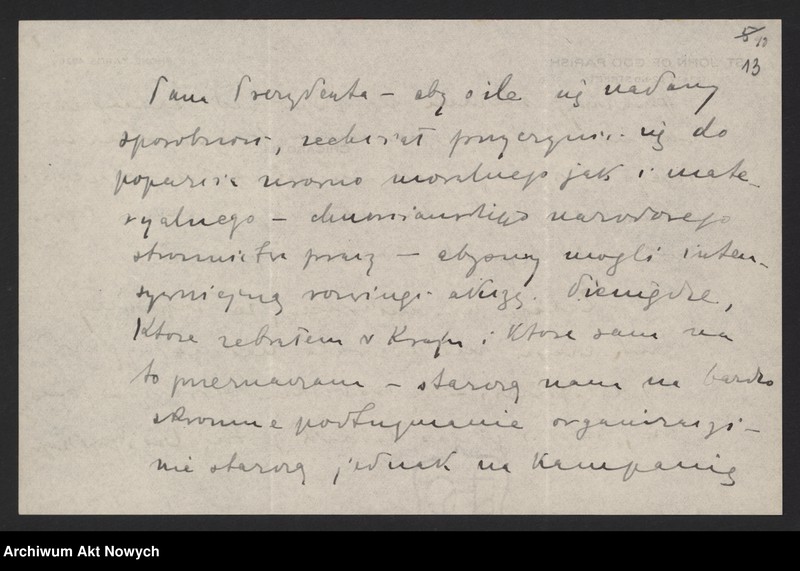 5 10
13
Pana Prezydenta – aby o ile się nadarzy
sposobność, zechciał przyczynić się do
poparcia zarówno moralnego jak i mate-
ryalnego – chrześciańskiego narodowego
stronnictwa pracy – abyśmy mogli inten-
sywniejszą rozwinąć akcyę. Pieniądze,
które zebrałem w Kraju i które sam na
to przeznaczam – starczą nam na bardzo
skromne podtrzymanie organizacyi –
nie starczą jednak na kampanię
Archiwum Akt Nowych